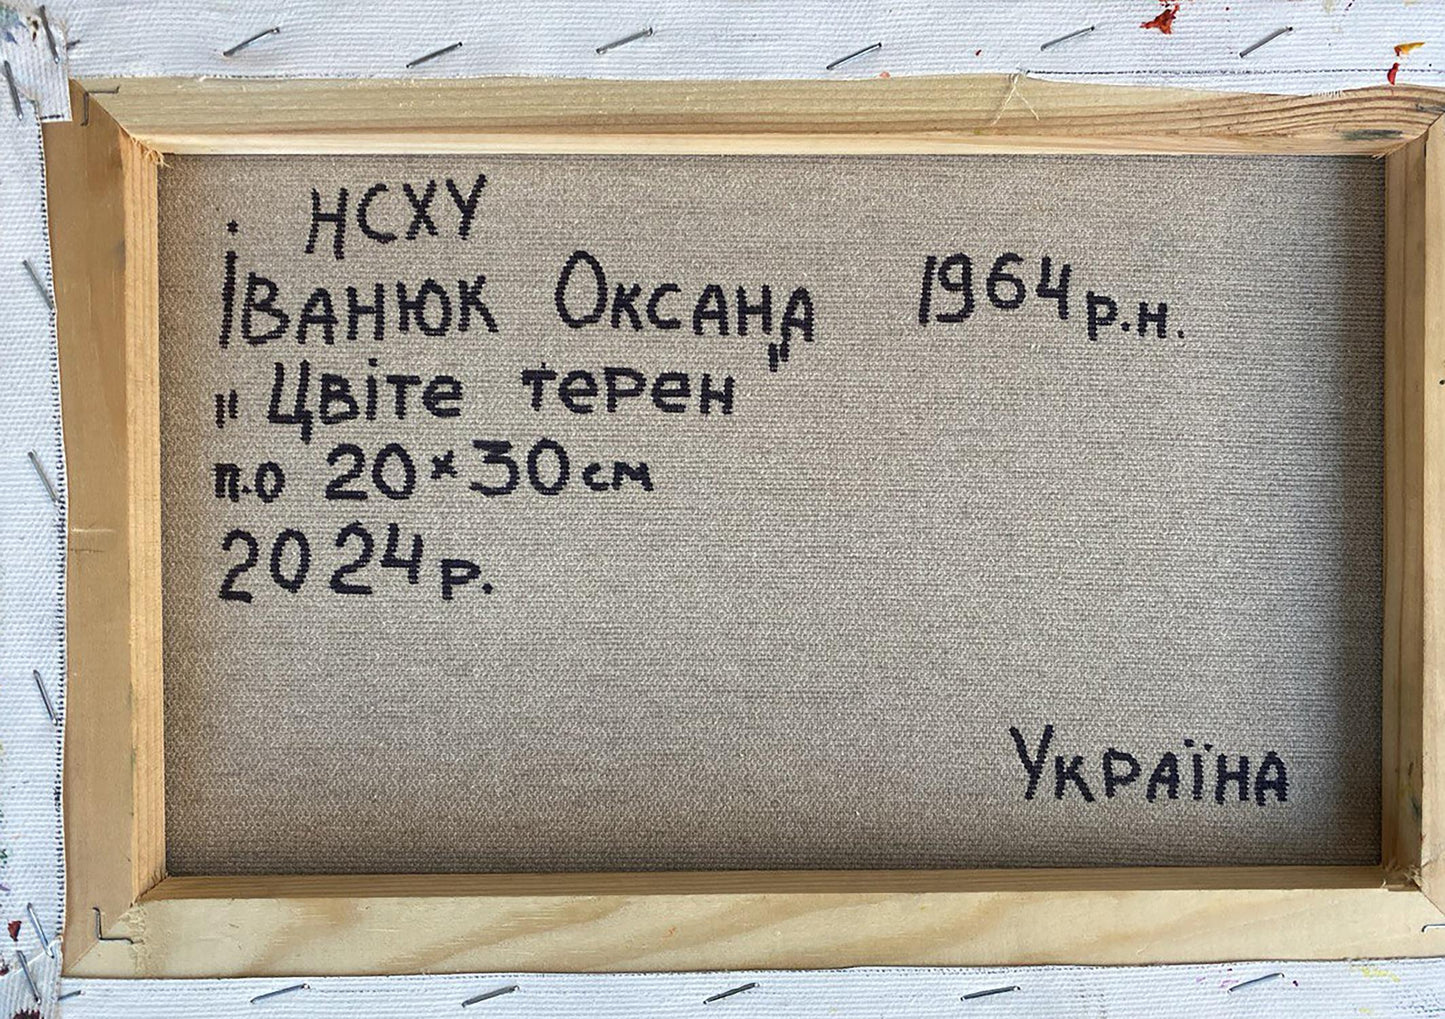 НСХУ
Іванюк Оксана 1964 р.н.
"Цвіте терен"
п.о 20×30 см
2024 р.
Україна